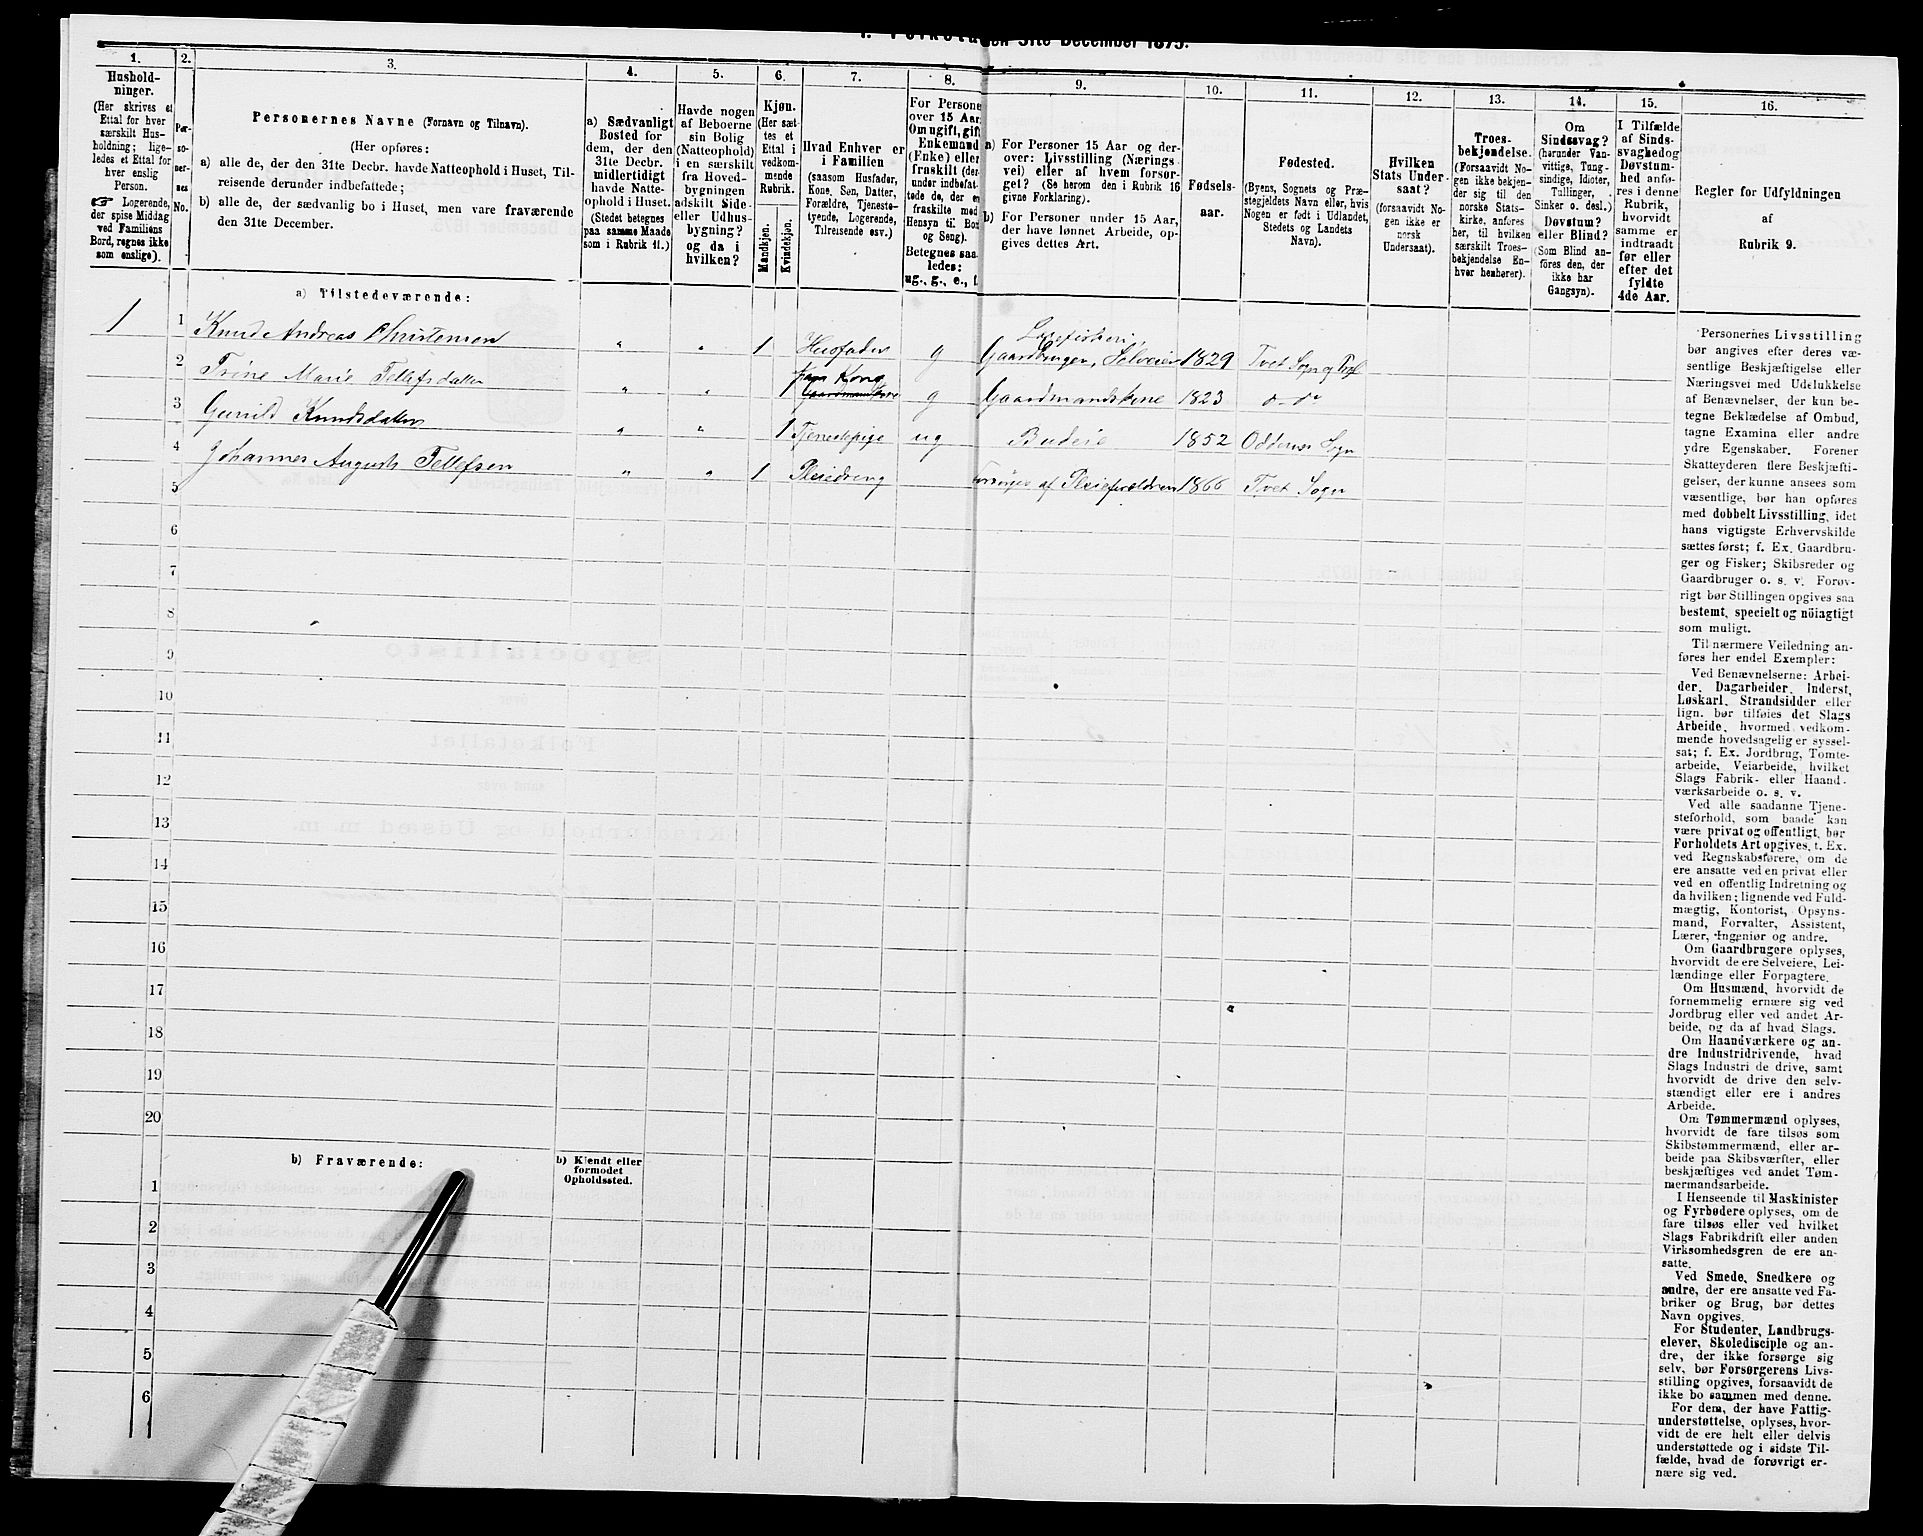 den 31te December 1875.
1. 2. 3. 4. 5. 6. 7. 8. 9. 10. 11. 12. 13. 14. 15. 16.
Hushold-
ninger.
(Her skrives et
Ettal for hver
særskilt Hus-
holdning; lige-
ledes et Ettal for
hver enslig
Person.
☞ Logerende,
der spise Middag
ved Familiens
Bord, regnes ikke
som enslige).
Per-
so-
ner-
nes
No.
Personernes Navne (Fornavn og Tilnavn).
(Her opføres:
a) alle de, der den 31te Decbr. havde Natteophold i Huset, Til-
reisende derunder indbefattede;
b) alle de, der sædvanlig bo i Huset, men vare fraværende
den 31te December.
a) Sædvanligt
Bosted for
dem, der den
31te Decbr.
midlertidigt
havde Natte-
ophold i Huset.
(Stedet betegnes
paa samme Maade
som i Rubrik 11.)
Havde nogen
af Beboerne
sin Bolig
(Natteophold)
i en særskilt
fra Hoved-
bygningen
adskilt Side-
eller Udhus-
bygning?
og da i
hvilken?
Kjøn.
(Her sæt-
tes et
Ettal i
vedkom-
mende
Rubrik.
Mandkjøn.
Kvindekjøn.
Hvad Enhver er
i Familien
(saasom Husfader,
Kone, Søn, Datter,
Forældre, Tjeneste-
tyende, Logerende,
Tilreisende osv.)
For Persone
over 15 Aar
Om ugift, gift
Enkemand
(Enke) eller
fraskilt (der-
under indbefat-
tede de, der e
fraskilte med
Hensyn til Bor
og Seng).
Betegnes saa-
ledes:
ug., g., e., f.
a) For Personer 15 Aar og der-
over: Livsstilling (Nærings-
vei) eller af hvem forsør-
get? (Se herom den i Rubrik 16
givne Forklaring).
b) For Personer under 15 Aar,
der have lønnet Arbeide, op-
gives dettes Art.
Fødsels-
aar.
Fødested.
(Byens, Sognets og Præ-
stegjeldets Navn eller, hvis
Nogen er født i Udlandet,
Stedets og Landets
Navn).
Hvilken
Stats Under-
saat?
(forsaavidt No-
gen ikke er
norsk
Undersaat).
Troes-
bekjendelse.
(Forsaavidt No-
gen ikke bekjen-
der sig til den
norske Stats-
kirke, anføres
her, til hvilken
særskilt Troes-
bekjendelse En-
hver henhører).
Om
Sindssvag?
(herunder Van-
vittige, Tung-
sindige, Idioter,
Tullinger,
Sinker o. desl.)
Døvstum?
eller Blind?
(Som Blind an-
føres den, der
ikke har
Gangsyn).
I Tilfælde
af Sinds-
svaghed og
Døvstum-
hed anfø-
res i denne
Rubrik,
hvorvidt
samme er
indtraadt
før eller
efter det
fyldte
4de Aar.
Regler for Udfyldningen
af
Rubrik 9.
a) Tilstedeværende:
Lagefiskeri,
1 1 Knud Andreas Christensen " " 1 Husfader g Gaardbruger, Selveier 1829 Tvet Sogn og
hans Kone
2 Trine Marie Tellefsdatter " " 1 Gaardmandskone g Gaardmandskone 1823 d-do
3 Gunild Knudsdatter " " 1 Tjenestepige ug Budeie 1852 Oddernes Sogn
4 Johannes August Tellefsen " " 1 Pleiedreng Forsørges af Pleieforældrene 1866 Tvet Sogn
5
6
7
8
9
10
11
12
13
14
15
16
17
18
19
20
b) Fraværende:
b) Kjendt eller
formodet
Opholdssted.
1
2
3
4
5
6
Personernes Livsstilling
bør angives efter deres væ-
sentlige Beskjæftigelse eller
Næringsvei med Udelukkelse
af Benævnelser, der kun be-
tegne Beklædelse af Ombud,
tagne Examina eller andre
ydre Egenskaber. Forener
Skatteyderen flere Beskjæfti-
gelser, der kunne ansees som
væsentlige, bør han opføres
med dobbelt Livsstilling, idet
hans vigtigste Erhvervskilde
sættes først; f. Ex. Gaardbru-
ger og Fisker; Skibsreder og
Gaardbruger o. s. v. Forøv-
rigt bør Stillingen opgives saa
bestemt, specielt og nöiagtigt
som muligt.
Til nærmere Veiledning an-
føres her endel Exempler:
Ved Benævnelserne: Arbei-
der, Dagarbeider, Inderst,
Løskarl, Strandsidder eller
lign. bør tilføies det Slags
Arbeide, hvormed vedkom-
mende hovedsagelig er syssel-
sat; f. Ex. Jordbrug, Tomte-
arbeide, Veiarbeide, hvilket
Slags Fabrik- eller Haand-
værksarbeide o. s. v.
Ved alle saadanne Tjene-
steforhold, som baade kan
være privat og offentligt, bør
Forholdets Art opgives, t. Ex.
ved Regnskabsførere, om de
ere ansatte ved en privat eller
ved en offentlig Indretning og
da hvilken; lignende ved Fuld-
mægtig, Kontorist, Opsyns-
mand, Forvalter, Assistent,
Lærer, Ingeniør og andre.
Om Gaardbrugere oplyses,
hvorvidt de ere Selveiere, Lei-
lændinge eller Forpagtere.
Om Husmænd, hvorvidt de
fornemmelig ernære sig ved
Jordbrug eller ved andet Ar-
beide, og da af hvad Slags.
Om Haandværkere og an-
dre Industridrivende, hvad
Slags Industri de drive, samt
hvorvidt de drive den selv-
stændigt eller ere i andres
Arbeide.
Om Tømmermænd oplyses,
hvorvidt de fare tilsøs som
Skibstømmermænd, eller ar-
beide paa Skibsværfter, eller
beskjæftiges ved andet Tøm-
mermandsarbeide.
I Henseende til Maskinister
og Fyrbødere oplyses, om de
fare tilsøs eller ved hvilket
Slags Fabrikdrift eller anden
Virksomhedsgren de ere an-
satte.
Ved Smede, Snedkere og
andre, der ere ansatte ved Fa-
briker og Brug, bør dettes
Navn opgives.
For Studenter, Landbrugs-
elever, Skoledisciple og an-
dre, der ikke forsørge sig
selv, bør Forsørgerens Livs-
stilling opgives, forsaavidt de
ikke bo sammen med denne.
For dem, der have Fattig-
understøttelse, oplyses, hvor-
vidt de ere helt eller delvis
understøttede og i sidste Til-
fælde, hvad de forøvrigt er-
nære sig ved.